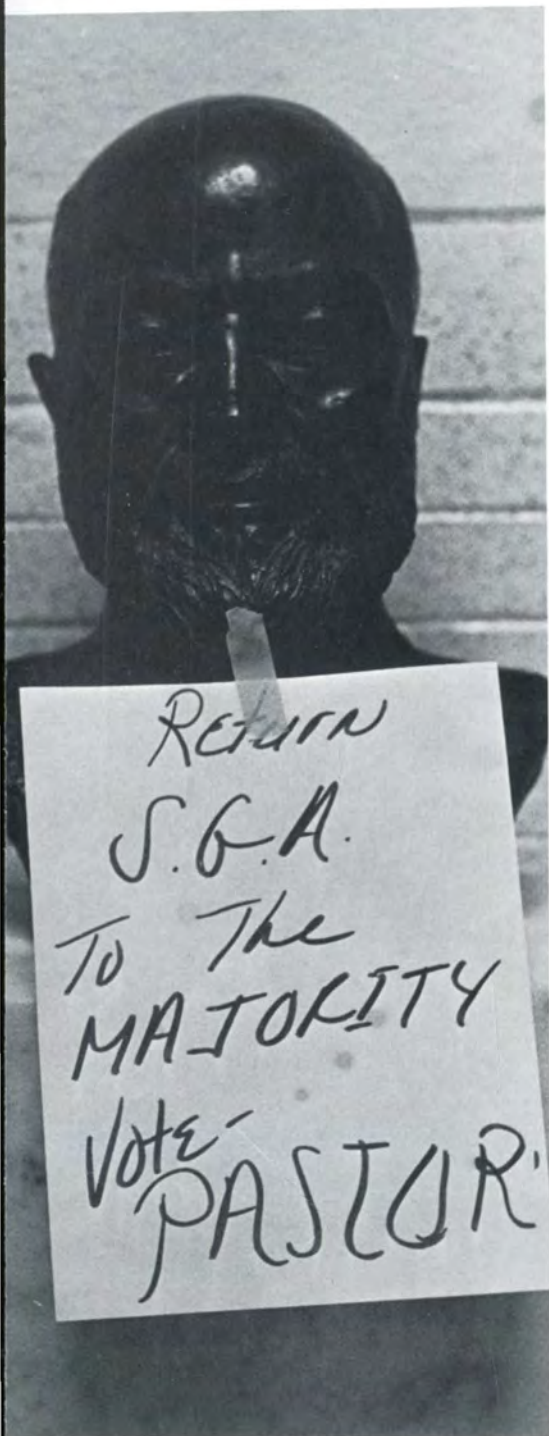 Return
S.G.A.
To The
MAJORITY
Vote-
PASTOR